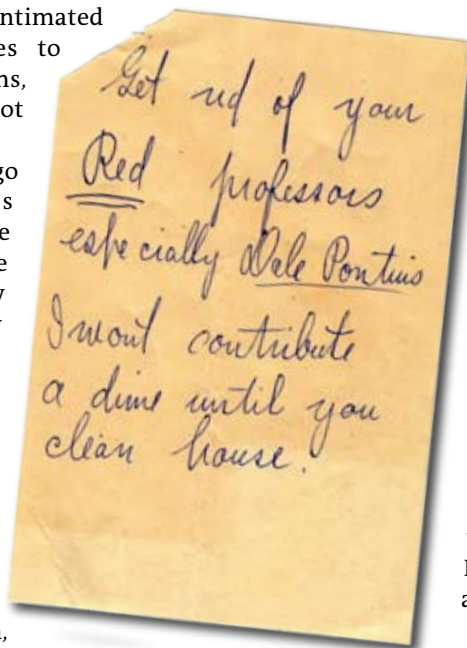 ntimated
es to
ns,
ot
go
s
e
e
y
Get rid of your
Red professors
especially Dale Pontius
I wont contribute
a dime until you
clean house.
a
,